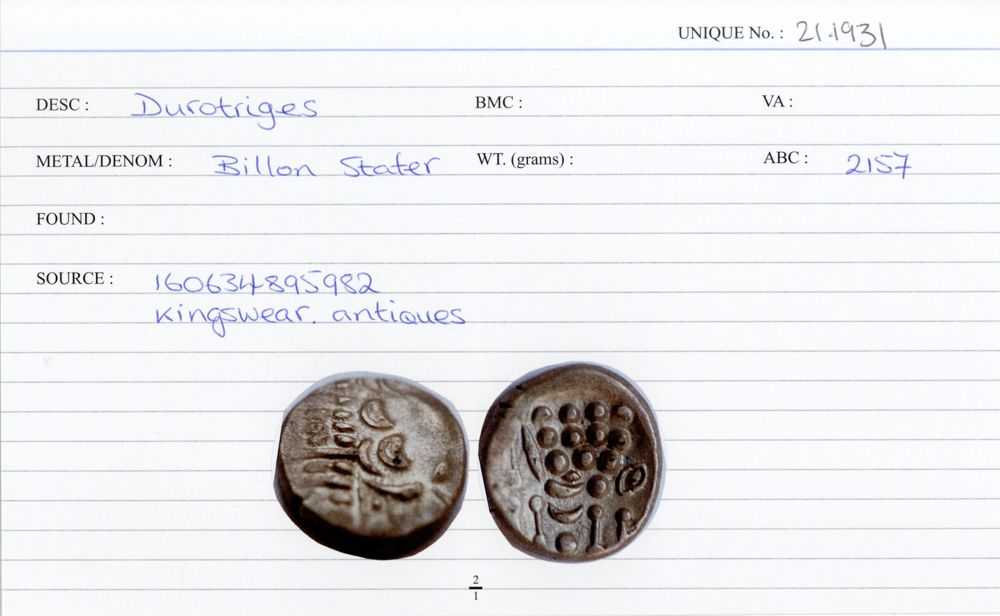 UNIQUE No. : 21.1931
DESC : Durotriges BMC : VA :
METAL/DENOM : Billon Stater WT. (grams) : ABC : 2157
FOUND :
SOURCE : 160634895982
kingswear. antiques
2
1